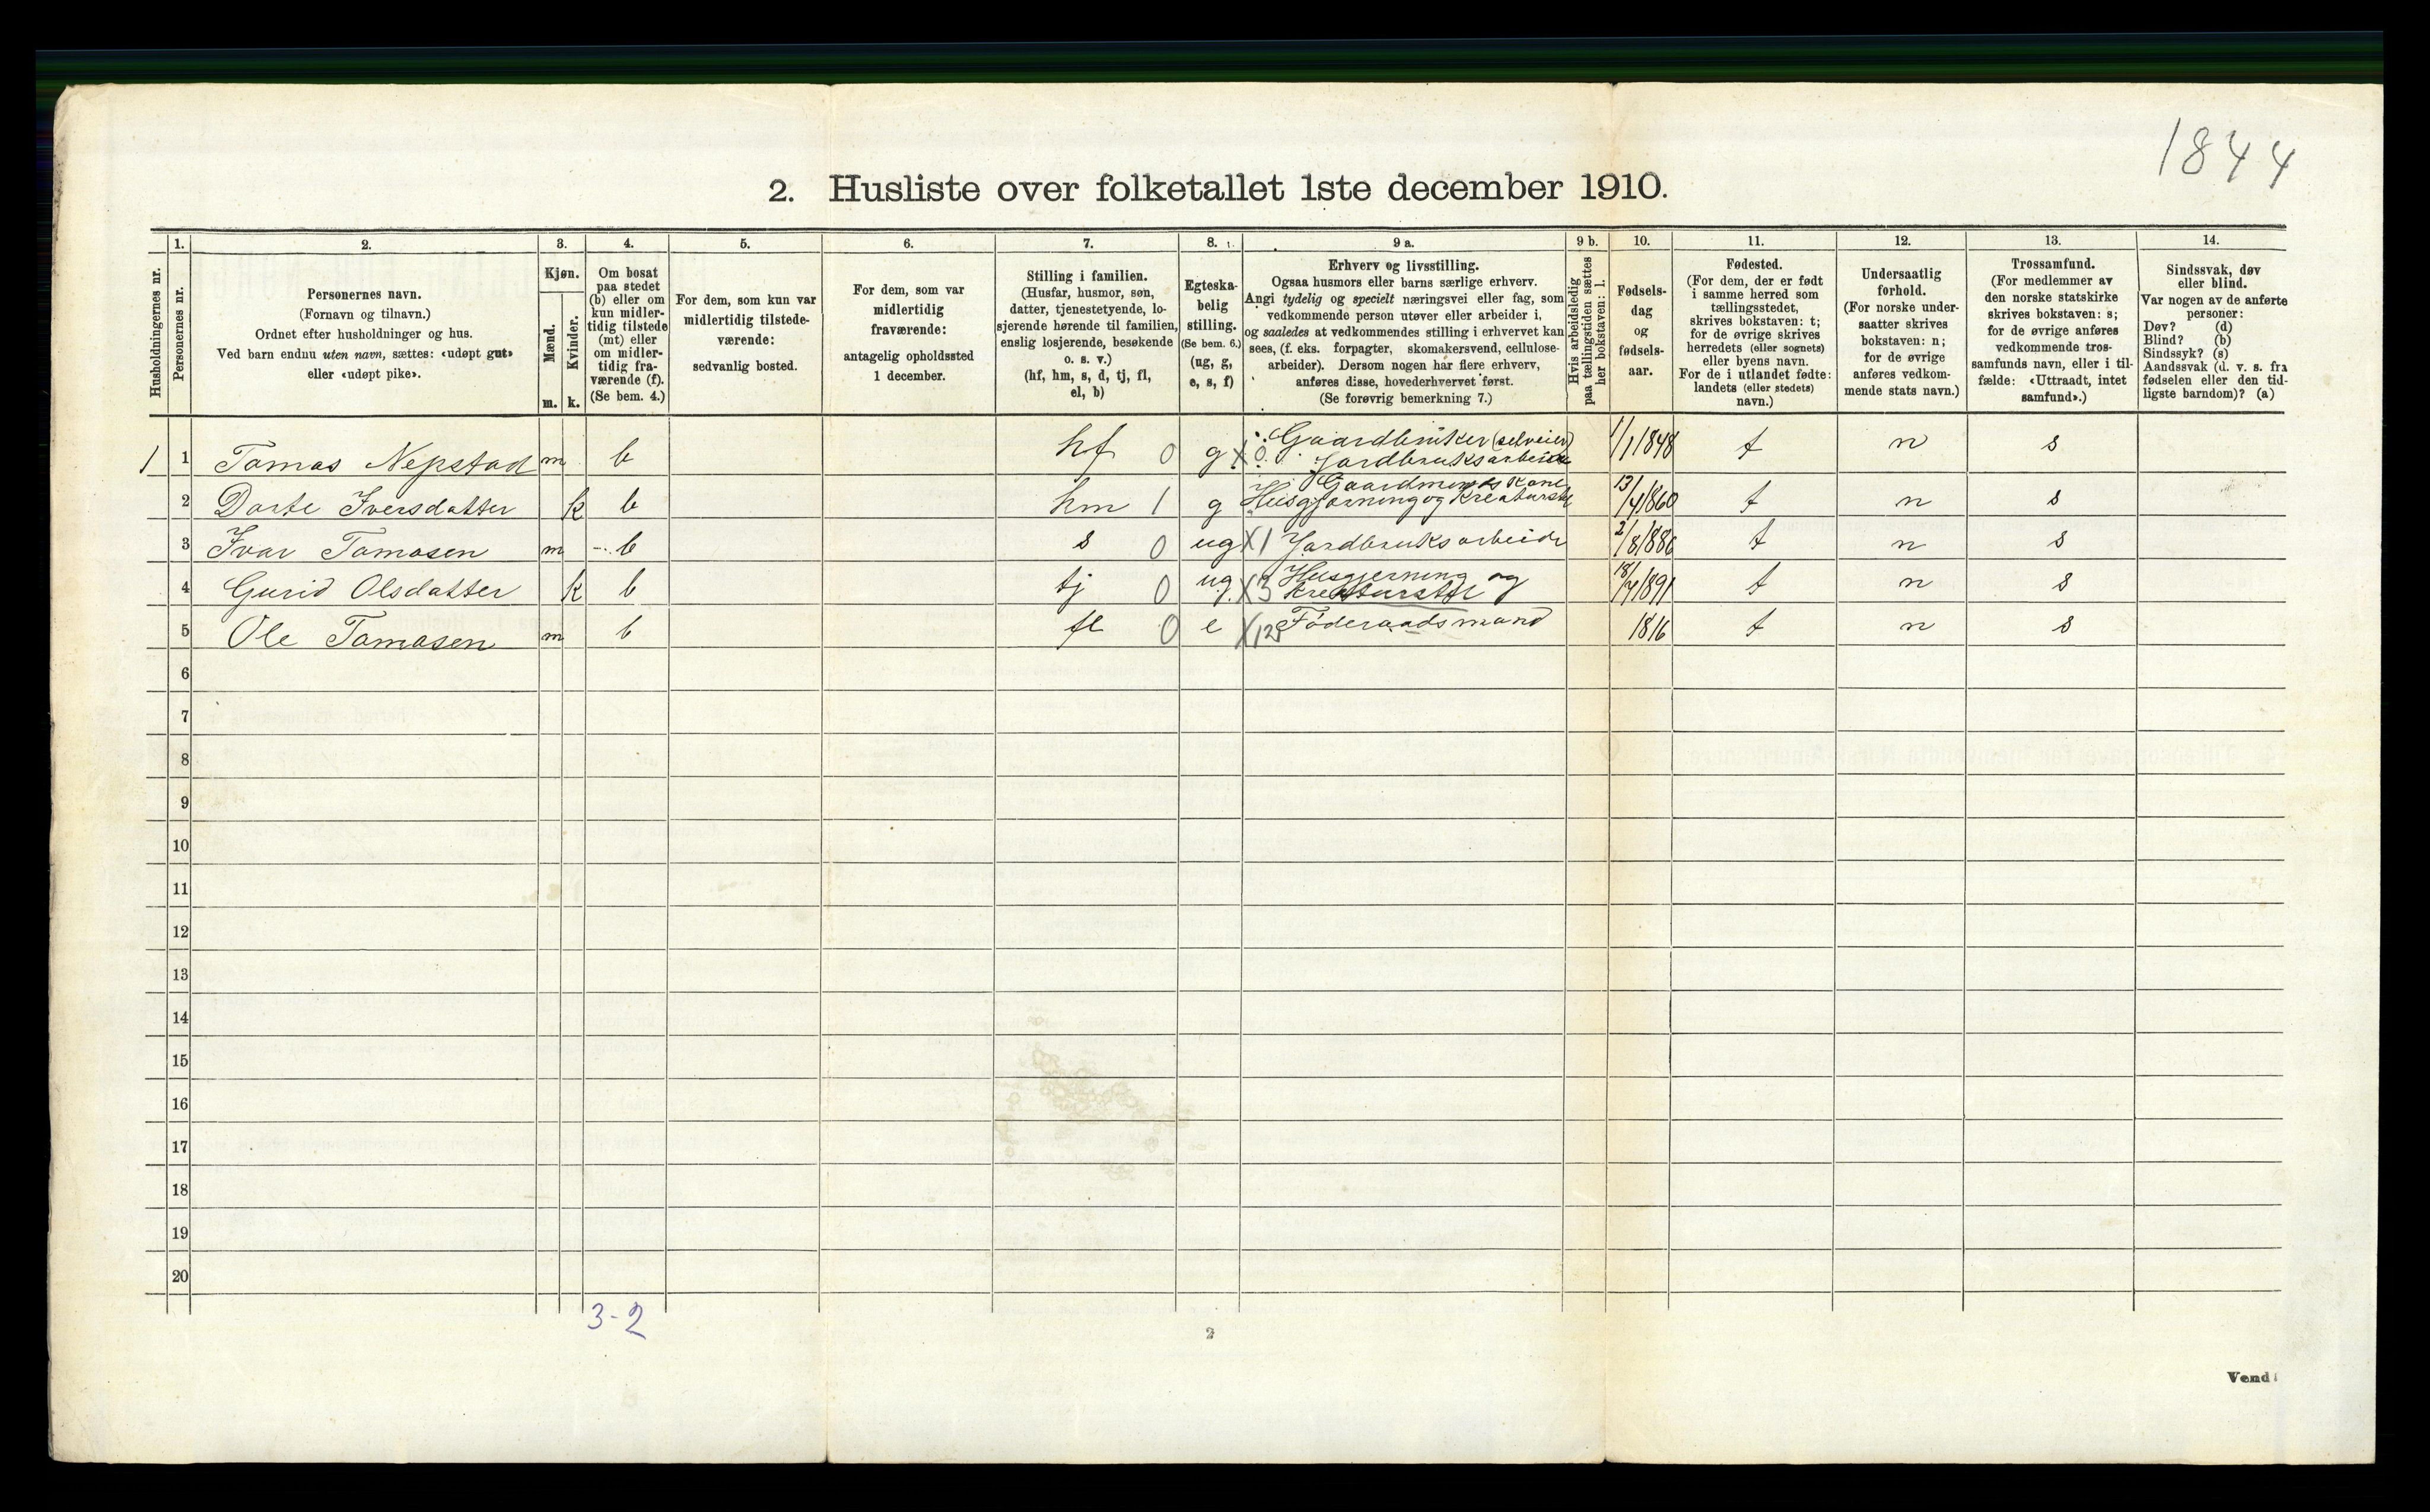 1844
2. Husliste over folketallet 1ste december 1910.
Husholdningernes nr.
1.
Personernes nr.
2.
Personernes navn.
(Fornavn og tilnavn.)
Ordnet efter husholdninger og hus.
Ved barn endnu uten navn, sættes: «udøpt gut»
eller «udøpt pike».
3.
Kjøn.
Mænd.
Kvinder.
m. k.
4.
Om bosat
paa stedet
(b) eller om
kun midler-
tidig tilstede
(mt) eller
om midler-
tidig fra-
værende (f).
(Se bem. 4.)
5.
For dem, som kun var
midlertidig tilstede-
værende:
sedvanlig bosted.
6.
For dem, som var
midlertidig
fraværende:
antagelig opholdssted
1 december.
7.
Stilling i familien.
(Husfar, husmor, søn,
datter, tjenestetyende, lo-
sjerende hørende til familien,
enslig losjerende, besøkende
o. s. v.)
(hf, hm, s, d, tj, fl,
el, b)
8.
Egteska-
belig
stilling.
(Se bem. 6.)
(ug, g,
e, s, f)
9 a.
Erhverv og livsstilling.
Ogsaa husmors eller barns særlige erhverv.
Angi tydelig og specielt næringsvei eller fag, som
vedkommende person utøver eller arbeider i,
og saaledes at vedkommendes stilling i erhvervet kan
sees, (f. eks. forpagter, skomakersvend, cellulose-
arbeider). Dersom nogen har flere erhverv,
anføres disse, hovederhvervet først.
(Se forøvrig bemerkning 7.)
9 b.
Hvis arbeidsledig
paa tællingstiden sættes
her bokstaven: l.
10.
Fødsels-
dag
og
fødsels-
aar.
11.
Fødested.
(For dem, der er født
i samme herred som
tællingsstedet,
skrives bokstaven: t;
for de øvrige skrives
herredets (eller sognets)
eller byens navn.
For de i utlandet fødte:
landets (eller stedets)
navn.)
12.
Undersaatlig
forhold.
(For norske under-
saatter skrives
bokstaven: n;
for de øvrige
anføres vedkom-
mende stats navn.)
13.
Trossamfund.
(For medlemmer av
den norske statskirke
skrives bokstaven: s;
for de øvrige anføres
vedkommende tros-
samfunds navn, eller i til-
fælde: «Uttraadt, intet
samfund».)
14.
Sindssvak, døv
eller blind.
Var nogen av de anførte
personer:
Døv? (d)
Blind? (b)
Sindssyk? (s)
Aandssvak (d. v. s. fra
fødselen eller den tid-
ligste barndom)? (a)
1 1 Tomas Nepstad m b hf 0 g X 0 Gaardbruker (selveier) Jordbruksarbeide 1/1 1848 t n s
2 Dorte Iversdatter k b hm 1 g Gaardmands Kone Husgjærning og Kreaturstel 13/4 1860 t n s
3 Ivar Tomasen m b s 0 ug X1 Jordbruksarbeide 2/8 1886 t n s
4 Gurid Olsdatter k b tj 0 ug. X3 Husgjerning og Kreaturstel 18/4 1891 t n s
5 Ole Tomasen m b fl 0 e X12 Føderaadsmand 1816 t n s
6
7
8
9
10
11
12
13
14
15
16
17
18
19
20
3-2
2
Vend!